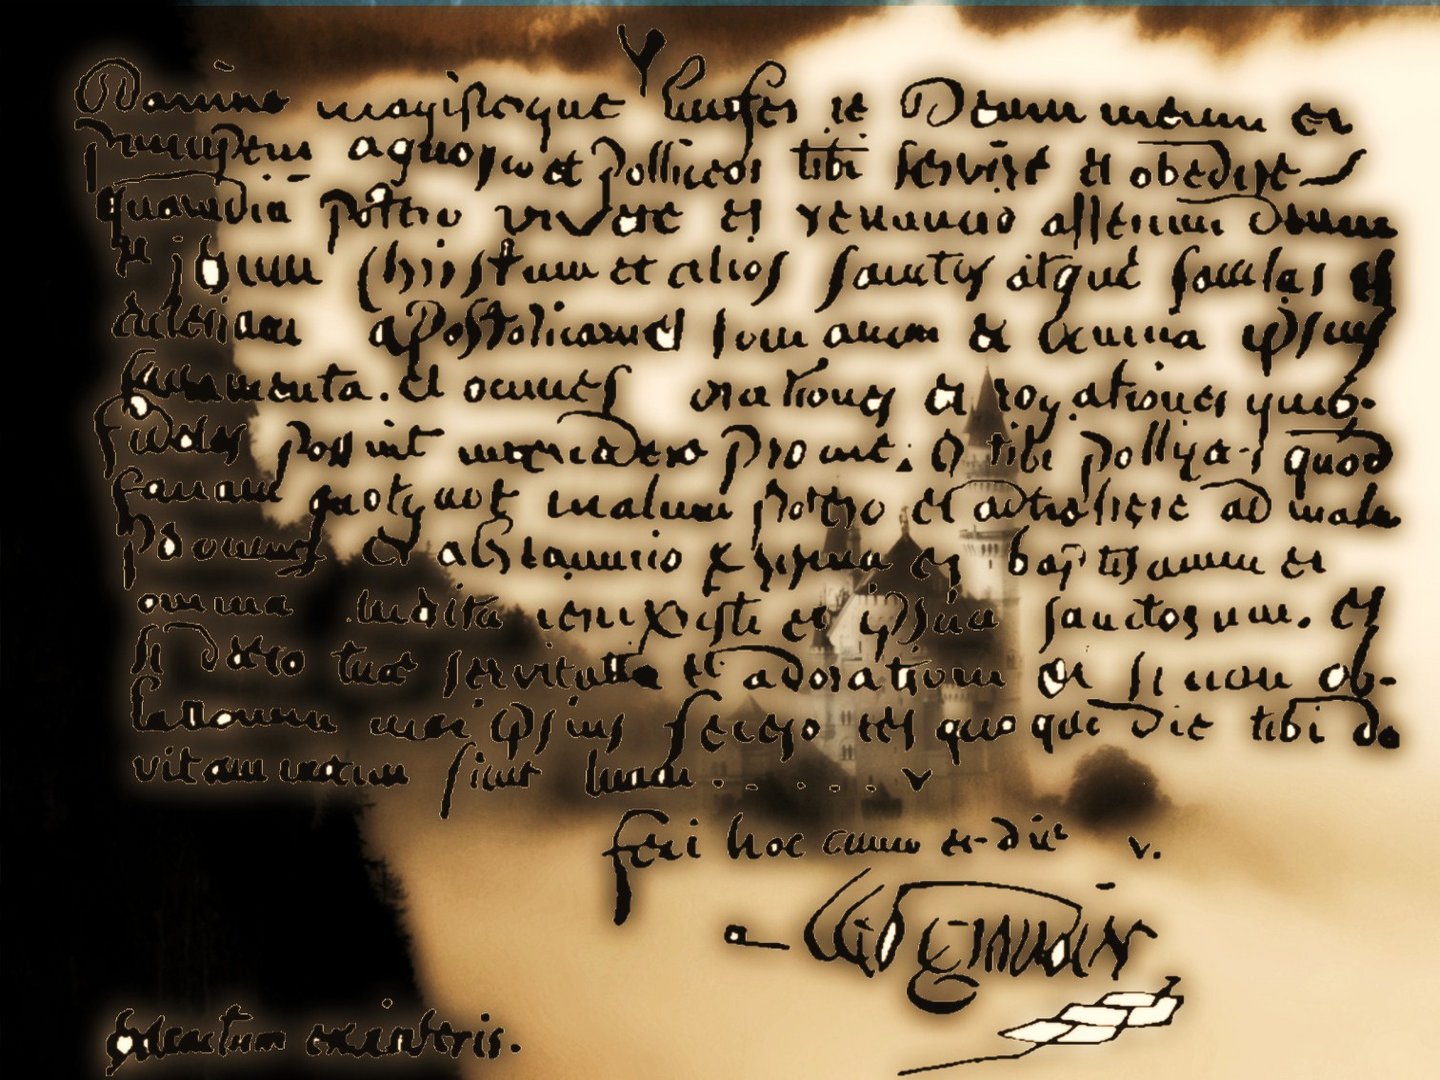 Domine magisterque lucifer te Deum meum et
principem agnosco et polliceor tibi servire et obedire
quamdiu potero vivere et renuncio alterum Deum
et jesum Christum et alios sanctos atque sanctas et
ecclesiam apostolicam et romanam et omnia ipsius
sacramenta. et omnes orationes et rogationes quib-
fideles possint intercedere pro me. et tibi polliceor quod
faciam quotquot malum potero et adtrahere ad mala
per omnes et abrenuncio chrisma et baptismum et
omnia merita iesu christi et ipsius sanctorum. et
si deero tuae servitute et adorationi et si non ob-
lationem mei ipsius fecero ter quoque die tibi do
vitam meam sicut tuam . . . . . .
feci hoc anno et die
extractum ex inferis.